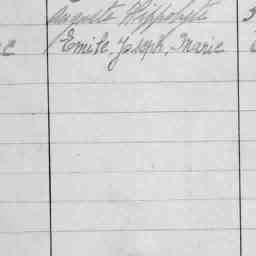 Auguste Hippolyte
Emile, Joseph, Marie